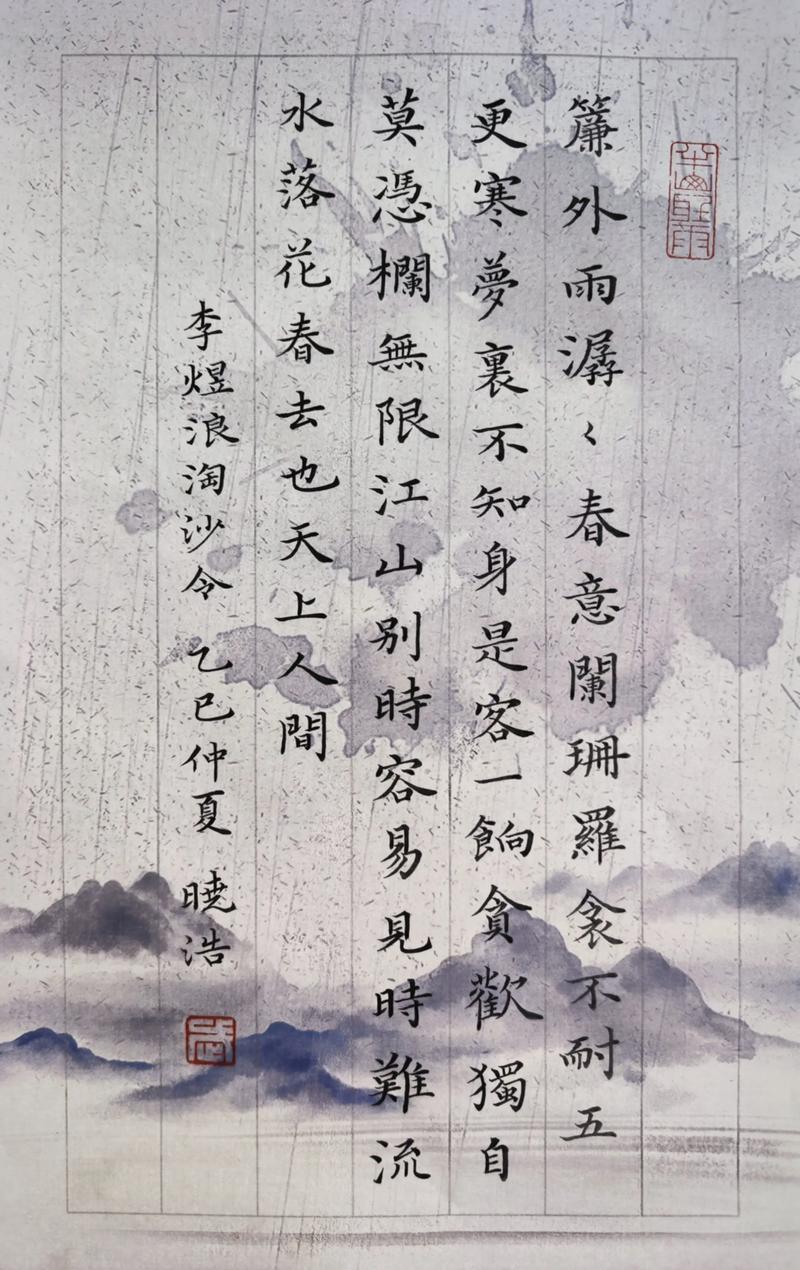 簾外雨潺〻春意闌珊羅衾不耐五
更寒夢裏不知身是客一餉貪歡獨自
莫憑欄無限江山别時容易見時難流
水落花春去也天上人間
李煜浪淘沙令 乙巳仲夏 曉浩